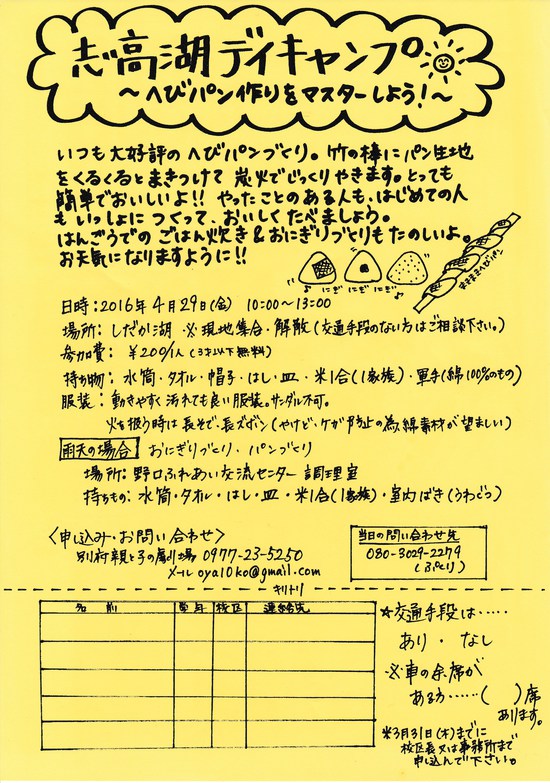 志高湖デイキャンプ
～へびパン作りをマスターしよう！～
いつも大好評のへびパンづくり。竹の棒にパン生地
をくるくるとまきつけて炭火でじっくりやきます。とっても
簡単でおいしいよ!! やったことのある人も、はじめての人
もいっしょにつくって、おいしくたべましょう。
はんごうでのごはん炊き&おにぎりづくりもたのしいよ。
お天気になりますように!!
♪にぎ にぎ にぎ♪
日時：2016年4月29日(金) 10:00～13:00
場所：しだか湖 ※現地集合・解散(交通手段のない方はご相談下さい。)
参加費：¥200/1人(3才以下無料)
持ち物：水筒・タオル・帽子・はし・皿・米1合(1家族)・軍手(綿100%のもの)
服装：動きやすく汚れても良い服装。サンダル不可。
火を扱う時は長そで、長ズボン(やけど、ケガ防止の為、綿素材が望ましい)
雨天の場合 おにぎりづくり・パンづくり
場所：野口ふれあい交流センター 調理室
持ちもの：水筒・タオル・はし・皿・米1合(1家族)・室内ばき(うわぐつ)
〈申込み・お問い合わせ〉
別府親と子の劇場 0977-23-5250
メール oya10ko@gmail.com
当日の問い合わせ先
080-3029-2279
キリトリ
名前 学年 校区 連絡先
★交通手段は‥‥‥
あり・なし
※車の余席が
ある方‥‥‥( )席
あります。
※3月31日(木)までに
校区長又は事務所まで
申込んで下さい。